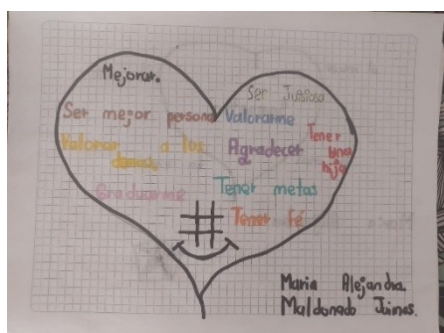 Mejorar.
Ser Juiciosa
Ser mejor persona
Valorarme
Tener una hija
Valorar a los demas.
Agradecer
Graduarme
Tener metas
Tener fé
#
Maria Alejandra.
Maldonado Jaimes.